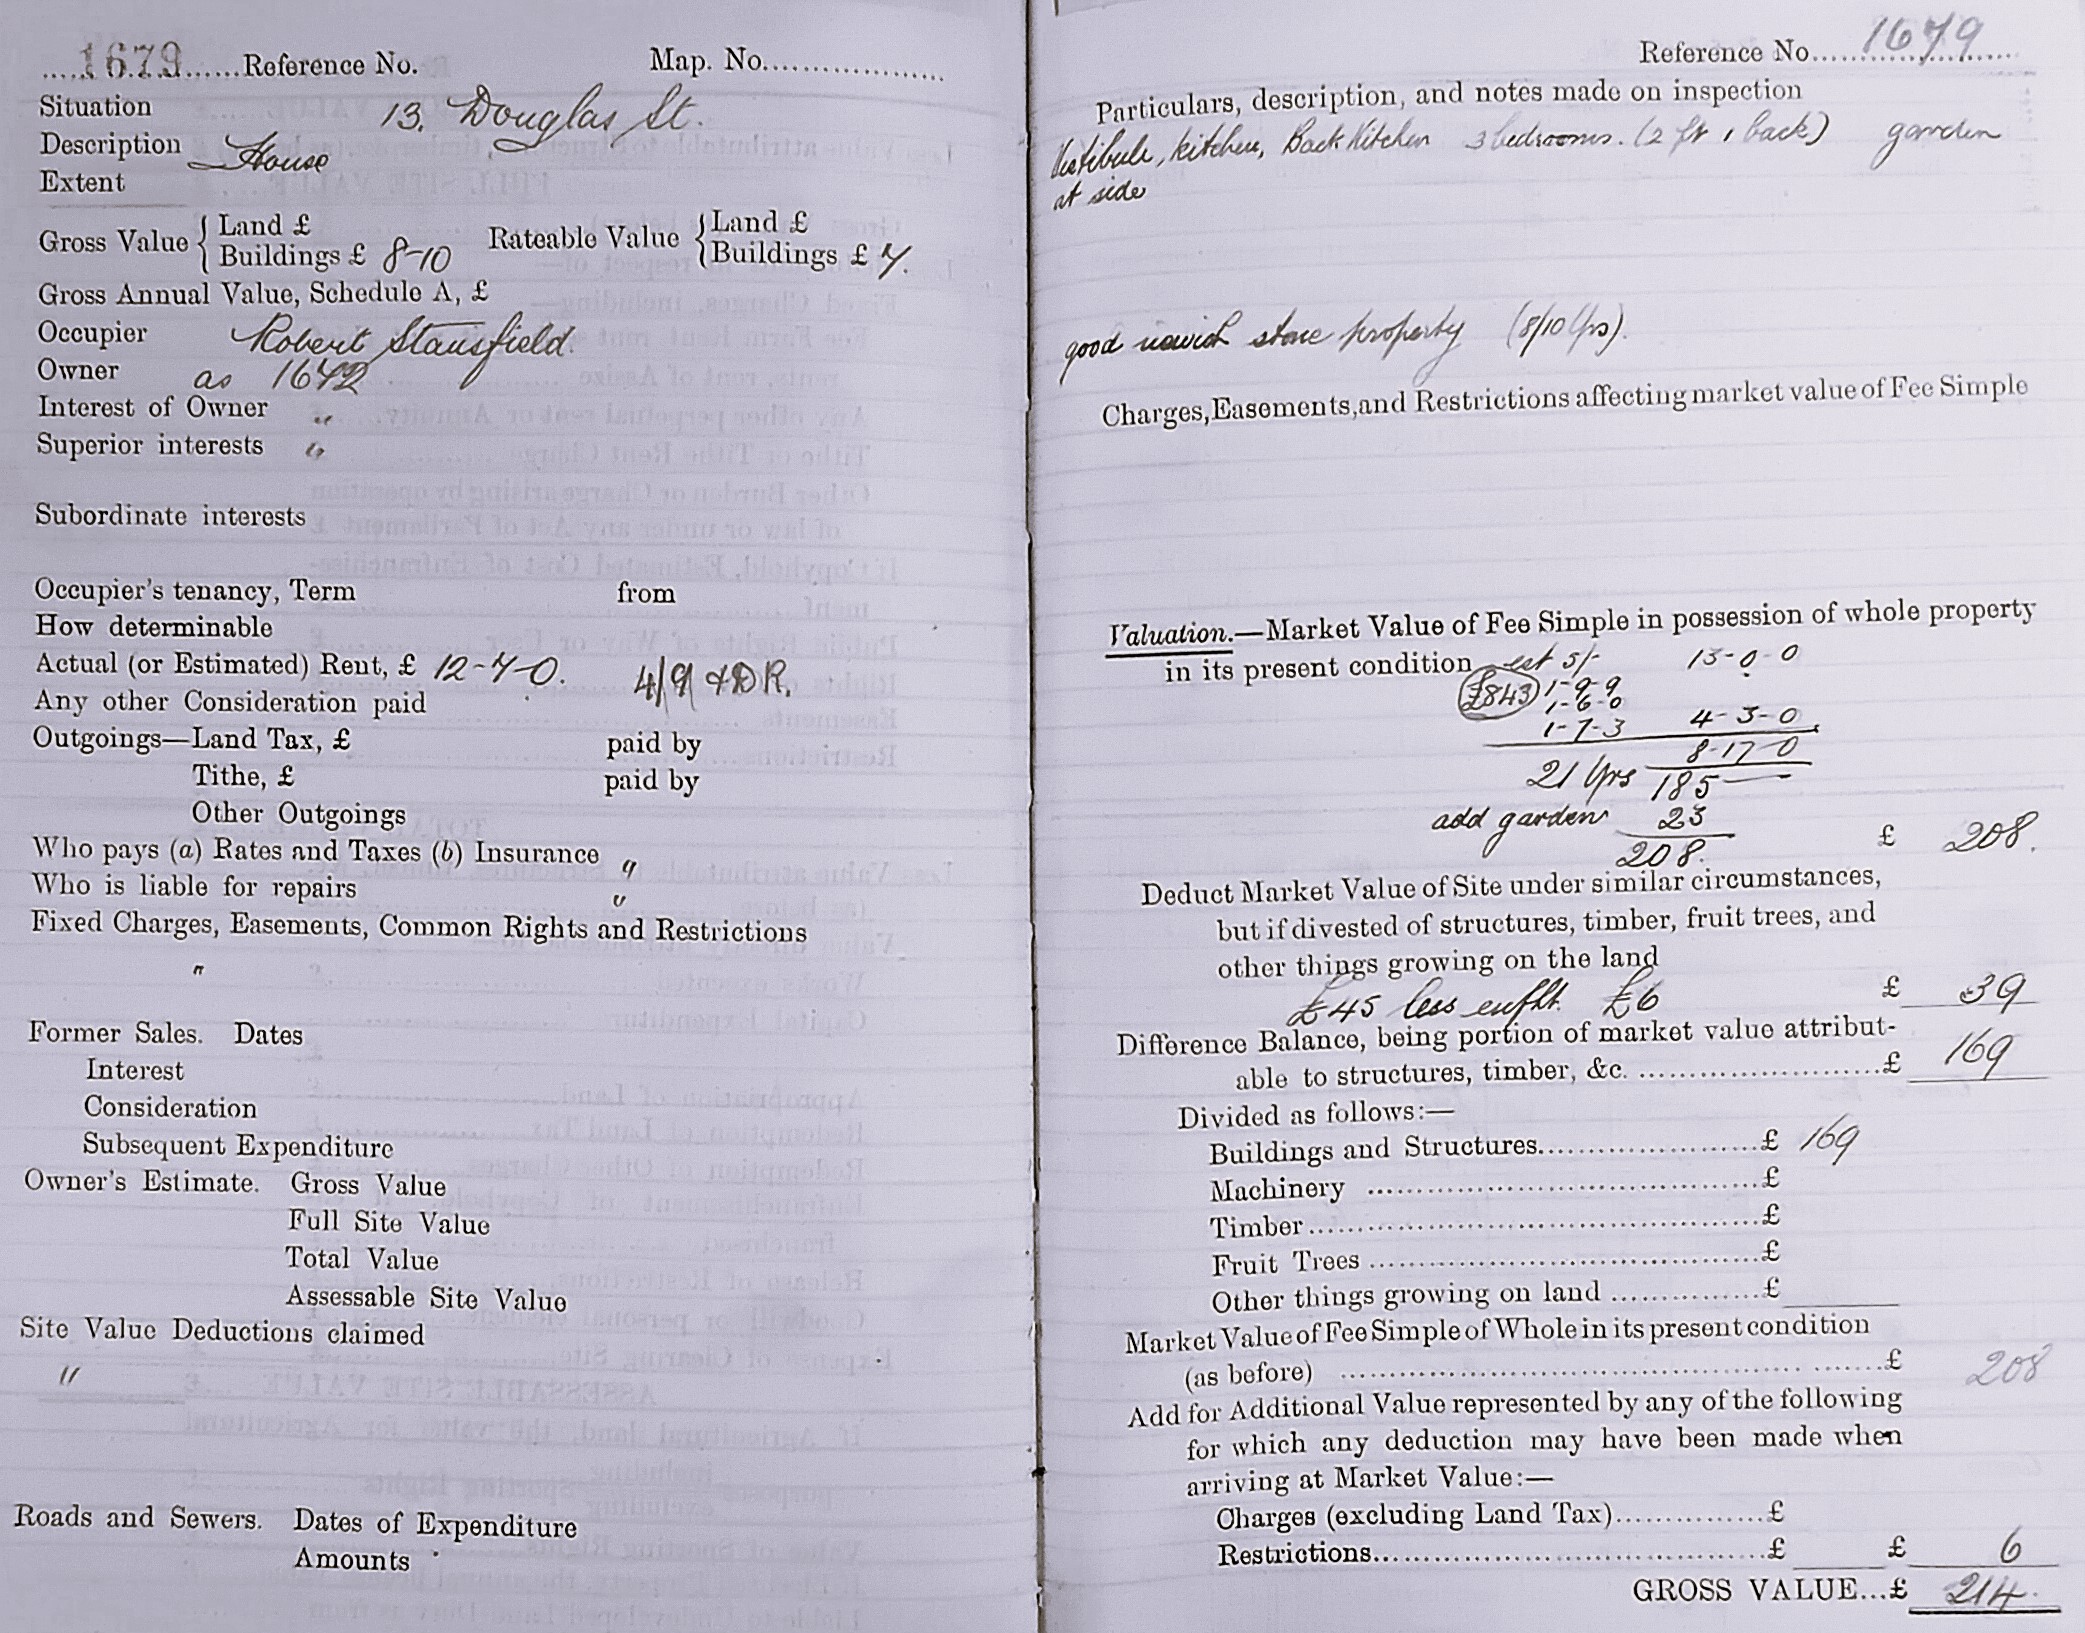 .....1679......Reference No. Map. No.....................
Situation 13, Douglas St.
Description House
Extent
Gross Value { Land £ Rateable Value { Land £
Buildings £ 8-10 Buildings £ 7.
Gross Annual Value, Schedule A, £
Occupier Robert Stansfield.
Owner as 1672
Interest of Owner "
Superior interests "
Subordinate interests
Occupier's tenancy, Term from
How determinable
Actual (or Estimated) Rent, £ 12-7-0. 4/9 & D R.
Any other Consideration paid
Outgoings—Land Tax, £ paid by
Tithe, £ paid by
Other Outgoings
Who pays (a) Rates and Taxes (b) Insurance "
Who is liable for repairs "
Fixed Charges, Easements, Common Rights and Restrictions
"
Former Sales. Dates
Interest
Consideration
Subsequent Expenditure
Owner's Estimate. Gross Value
Full Site Value
Total Value
Assessable Site Value
Site Value Deductions claimed
"
Roads and Sewers. Dates of Expenditure
Amounts
Reference No....1679......
Particulars, description, and notes made on inspection
Vestibule, kitchen, Back Kitchen 3 bedrooms. (2 ft 1 back) garden
at side
good newish stone property (8/10 Yrs).
Charges, Easements, and Restrictions affecting market value of Fee Simple
Valuation.—Market Value of Fee Simple in possession of whole property
in its present condition est 5/- 13-0-0
£843 1-9-9
1-6-0
1-7-3 4-3-0
8-17-0
21 Yrs 185
add garden 23
208. £ 208.
Deduct Market Value of Site under similar circumstances,
but if divested of structures, timber, fruit trees, and
other things growing on the land
£45 less £6 £ 39
Difference Balance, being portion of market value attribut-
able to structures, timber, &c. ........................£ 169
Divided as follows:—
Buildings and Structures......................£ 169
Machinery .....................................£
Timber..........................................£
Fruit Trees .....................................£
Other things growing on land ...............£
Market Value of Fee Simple of Whole in its present condition
(as before) .......................................................£ 208
Add for Additional Value represented by any of the following
for which any deduction may have been made when
arriving at Market Value:—
Charges (excluding Land Tax)...............£
Restrictions......................................£ £ 6
GROSS VALUE...£ 214.